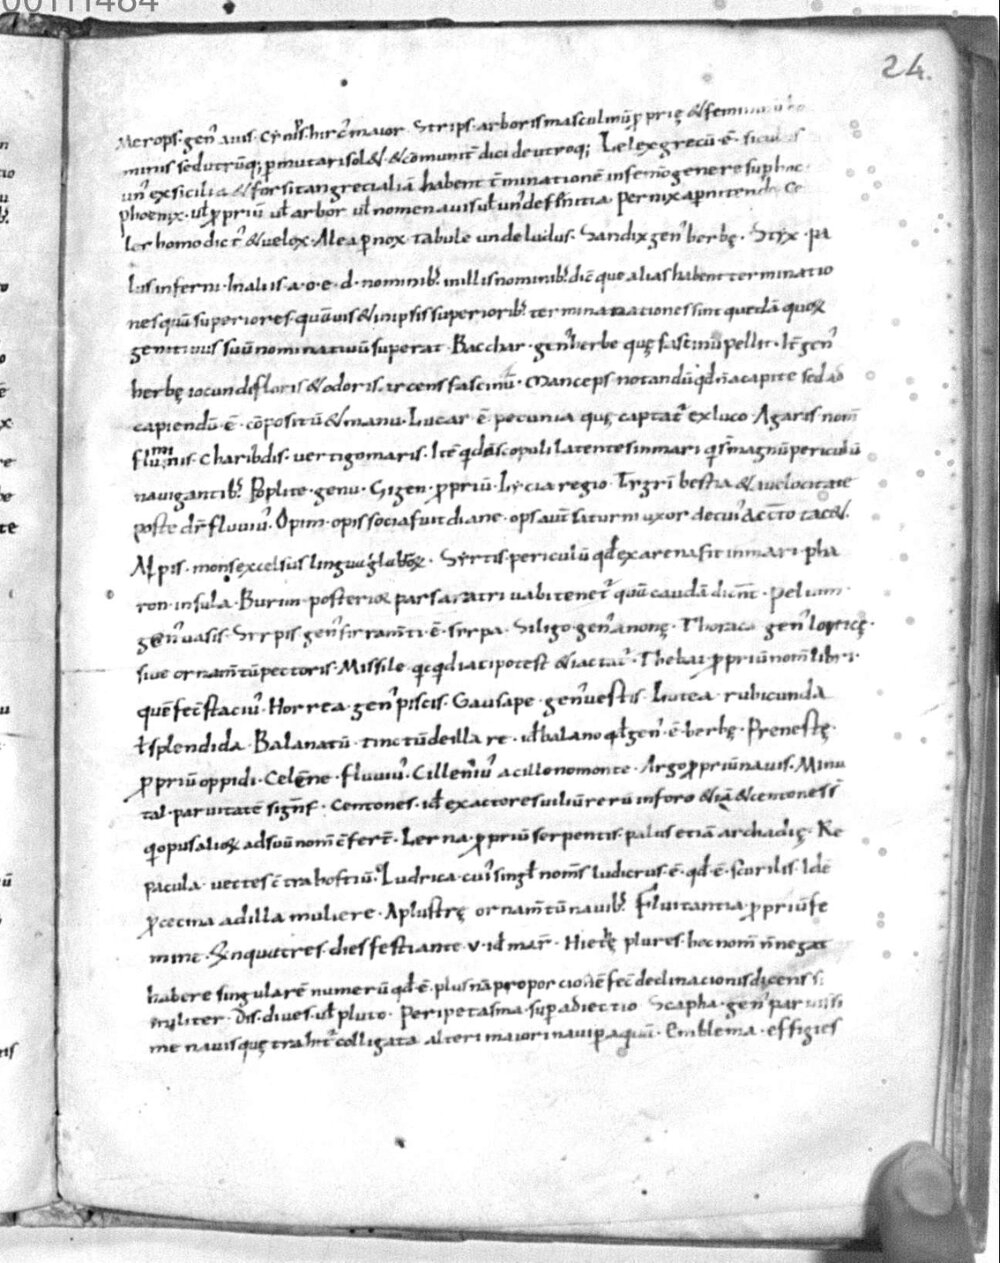 24.
Merops. gen' auis. hirc' maior. Stirps. arboris masculinū ꝓprię & femininū
minus sed utrūq; ꝑmutari sol& & cōmunit' dici de utroq; Lelex grecū ē. siculus
un' ex sicilia & forsitan grecialiā habent t'minationē in femō genere sup hac
phoenix. ul' ꝓpriū ul' arbor ul' nomen auis ul' unde Pernix a ꝑnitendo Ce
ler homo dict' & uelox. Alea ꝑnox tabule unde ludus. Sandix gen' herbę. Styx. pa
lus inferni. In aliis. a. o. e. d. nominib; nullis nominib; dic̄ que alias habent terminatio
nes quā superiores. quāuis & in ipsis superiorib; terminationes sint quedā quoꝝ
genitiuus suū nominatiuū superat. Bacchar. gen' herbe quę fastinū pellit. It' gen'
herbę iocundi floris & odoris. arcens fascinū. Manceps notandū qd n̄ a capite sed ad
capiendū ē. cōpositū & manu. Lucar ē pecunia quę captat' ex luco. Agaris nom̄
fluminis. Charibdis. uertigo maris. Itē scopuli latentes in mari magnū periculū
nauigantib; Poplite. genu. Gigen. ꝓpriū. Lycia regio. Tygri bestia & uelocitate
poste dr̄ fluuiu'. Opim. opis socia fuit diane. ops aut̄ saturni uxor tac&.
Alpis. mons excelsus lingua galloꝝ. Syrtis. periculū qd ex arena fit in mari. pha
ron. insula. Burim. posterioꝝ pars aratri ubi tenet' quā caudā dicunt. pelium.
gen' uasis. Sirpis gen' ferramti ē. sirpa. Siligo. gen' anonę. Thoraca gen' loricę.
siue ornamtū pectoris. Missile qcqd iaci potest & iactat'. Thebai. ꝓpriū nom̄ libri.
quē fec̄ staciu'. Horrea. gen' piscis. Gausape. gen' uestis. Lutea. rubicunda
ł splendida. Balanatū. tinctū de illa re. id balano qd gen' ē herbę. Preneste.
ꝓpriū oppidi. Celene. fluuiu'. Cilleniu' a cilleno monte. Argo ꝓpriū nauis. Minu
tal. paruitatē signif. Centones. id exactores uiliū rerū in foro & iā & centones s̄
q opus alioꝝ ad suū nom̄ Lerna. ꝓpriū serpentis. palus etiā archadię. Re
pacula. uectes cētra hostiū. Ludrica. cui' singl' nom̄s ludicrus ē. qd ē. scurilis. Idē
ꝓcecina ad illa muliere. Aplustrę ornamtū nauib; Fluitantia ꝓpriū fe
mine. Sinquatres. dies festi ante v. id mar̄. Hierę plures. hoc nom̄ n̄ negat
habere singularē numerū qd ē. plus nā proporcionē fec̄ declinacionis dicens si
militer. Dis. diues. ul' pluto. Peripetasma. supadiectio Scapha. gen' paruissi
me nauis quę trahit' colligata alteri maiori naui ꝑ aquā. Emblema. effigies